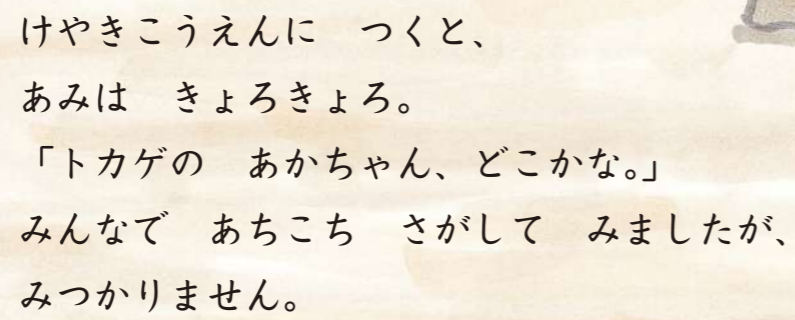 けやきこうえんに　つくと、
あみは　きょろきょろ。
「トカゲの　あかちゃん、どこかな。」
みんなで　あちこち　さがして　みましたが、
みつかりません。